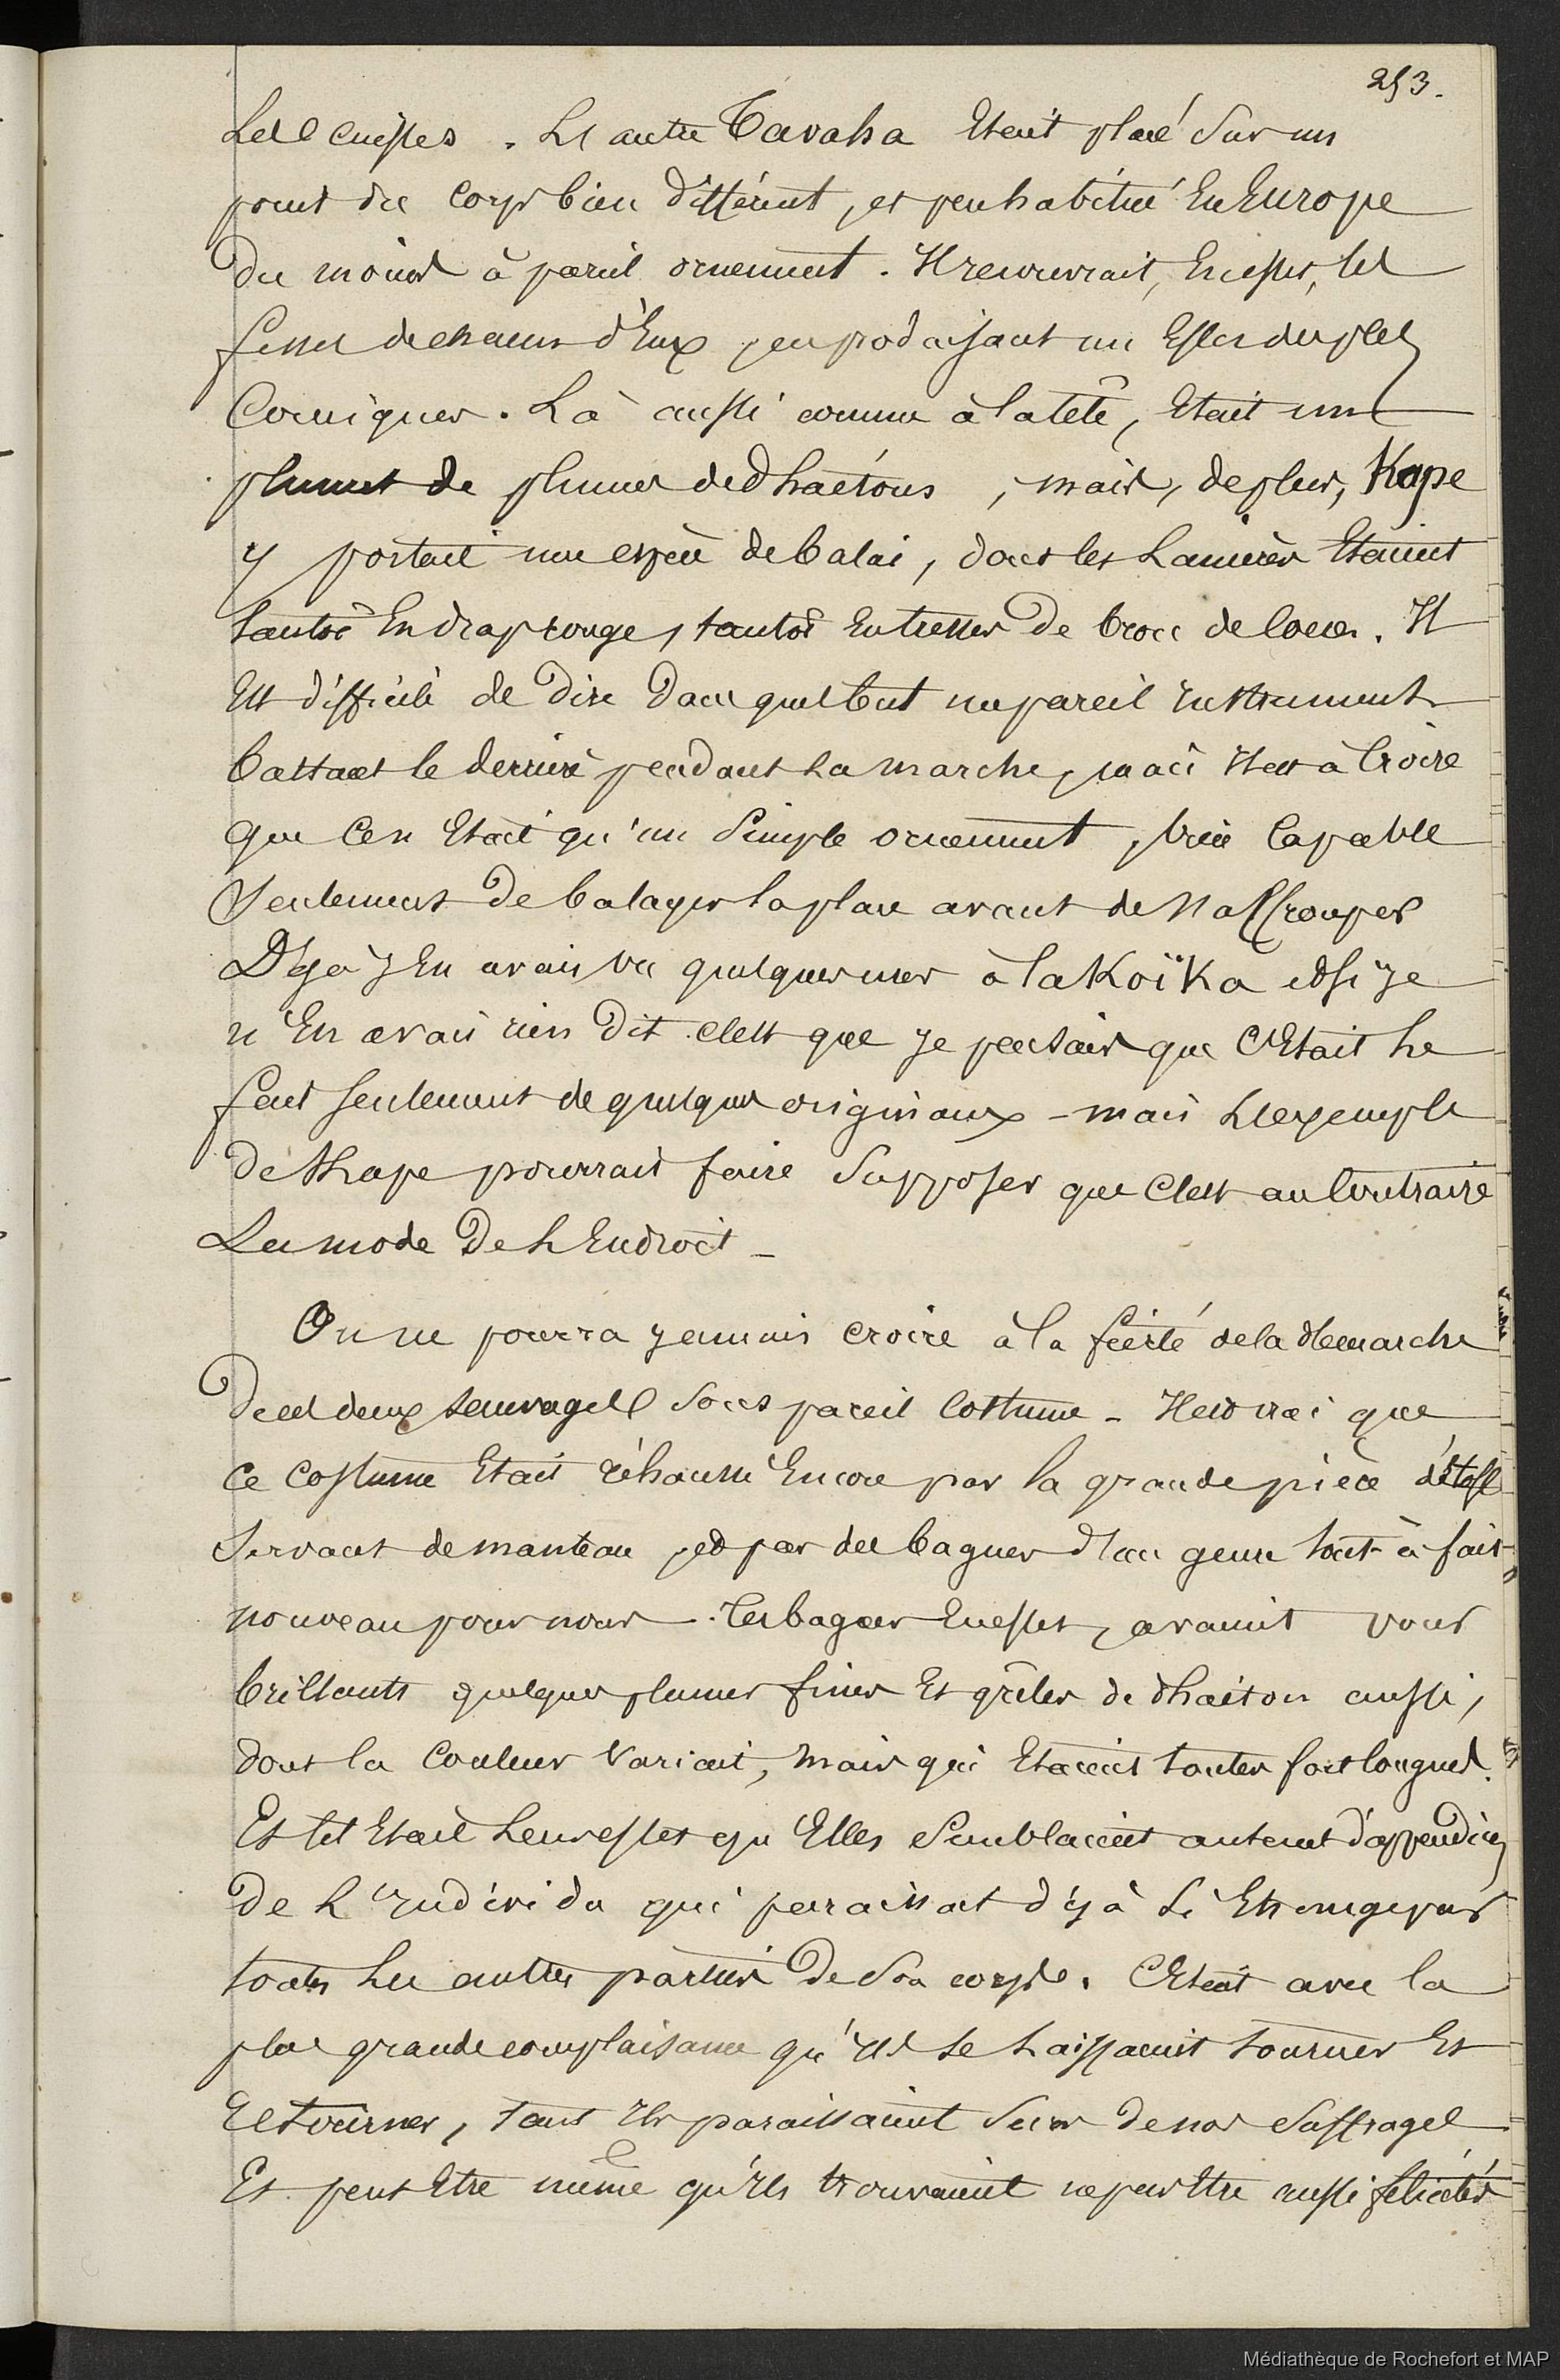 253.
Les cuisses. L'autre Tavaha Etait placé Sur un
point du Corps bien différent, et peu habitué En Europe
Du moins à pareil ornement. Il recouvrait, En effet, les
fesses de chacun d'Eux, en produisant un Effet des plus
Comiques. Là aussi comme à la tête, Etait un
plumet de plumes de Phaétons, mais, de plus, Kape
y portait une espèce de balai, dont les Lanières Etaient
tantôt En drap rouge, tantôt En tresses de brou de Coco. Il
Est difficile de Dire Dans quel but un pareil instrument
battait le derrière pendant La marche, mais Il est à Croire
que Ce n'Etait qu'un Simple ornement, bien Capable
Seulement De balayer la place avant de s'accroupir
Déjà j'En avais vu quelques uns à la Koïka et si je
n'En avais rien Dit c'est que je pensais que C'Etait le
fait seulement de quelques originaux - mais L'exemple
De Kape pourrait faire Supposer que C'est au Contraire
La mode De L'Endroit -
On ne pourra jamais croire à la fierté de la démarche
De ces deux sauvages Sous pareil Costume - Il est vrai que
Ce Costume Etait réhaussé Encore par la grande pièce d'étoffe
Servant de manteau, et par des bagues d'un genre tout à fait
nouveau pour nous. Ces bagues En effet, avaient pour
brillants quelques plumes fines Et grêles de Phaëton aussi,
dont la Couleur Variait, mais qui Etaient toutes fort longues.
Et tel Etait Leur effet qu'Elles Semblaient autant d'appendices
De L'individu qui paraissait déjà si Etrange par
toutes Les autres parties De Son corps. C'Etait avec la
plus grande complaisance qu'ils se Laissaient tourner Et
retourner, tant Ils paraissaient Surs de nos Suffrages
Et peut Etre même qu'ils trouvaient ne pas Etre aussi félicités
Médiathèque de Rochefort et MAP